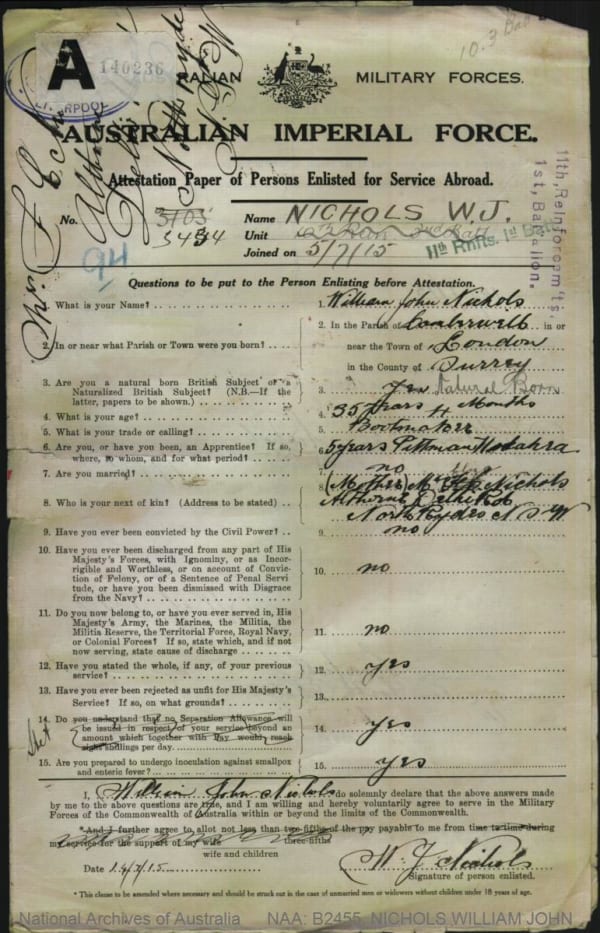 10.3
A 140236
RALIAN MILITARY FORCES.
AUSTRALIAN IMPERIAL FORCE.
Attestation Paper of Persons Enlisted for Service Abroad.
No. 3103 Name NICHOLS W.J.
3434 Unit
11th Rnfts. 1st Battn
Joined on 5/7/15
11th, Reinforcem'ts,
1st, Battalion.
94
Mrs. F. E.
Althorne
Delhi
North Ryde
N.S.W.
Questions to be put to the Person Enlisting before Attestation.
1. What is your Name? 1. William John Nichols
2. In or near what Parish or Town were you born? 2. In the Parish of Camberwell in or
near the Town of London
in the County of Surrey
3. Are you a natural born British Subject or a
Naturalized British Subject? (N.B.—If the
latter, papers to be shown.) 3. Yes Natural Born
4. What is your age? 4. 35 years 4 Months
5. What is your trade or calling? 5. Bootmaker
6. Are you, or have you been, an Apprentice? If so,
where, to whom, and for what period? 6. 5 years Pittman
7. Are you married? 7. no
8. Who is your next of kin? (Address to be stated) 8. (Mother) Mrs Nichols
Althorne Delhi Rd
North Ryde N S W
9. Have you ever been convicted by the Civil Power? 9. no
10. Have you ever been discharged from any part of His
Majesty's Forces, with Ignominy, or as Incor-
rigible and Worthless, or on account of Convic-
tion of Felony, or of a Sentence of Penal Servi
tude, or have you been Dismissed with Disgrace
from the Navy? 10. no
11. Do you now belong to, or have you ever served in, His
Majesty's Army, the Marines, the Militia, the
Militia Reserve, the Territorial Force, Royal Navy,
or Colonial Forces? If so, state which, and if not
now serving, state cause of discharge 11. no
12. Have you stated the whole, if any, of your previous
service? 12. yes
13. Have you ever been rejected as unfit for His Majesty's
Service? If so, on what grounds? 13.
14. Do you understand that no Separation Allowance will
be issued in respect of your service beyond an
amount which together with Pay would reach
eight shillings per day. 14. yes
15. Are you prepared to undergo inoculation against smallpox
and enteric fever? 15. yes
I, William John Nichols do solemnly declare that the above answers made
by me to the above questions are true, and I am willing and hereby voluntarily agree to serve in the Military
Forces of the Commonwealth of Australia within or beyond the limits of the Commonwealth.
*And I further agree to allot not less than two-fifths of the pay payable to me from time to time during
my service for the support of my wife three-fifths
wife and children
Date W. J. Nichols
Signature of person enlisted.
* This clause to be amended where necessary and should be struck out in the case of unmarried men or widowers without children under 18 years of age.
National Archives of Australia NAA: B2455, NICHOLS WILLIAM JOHN